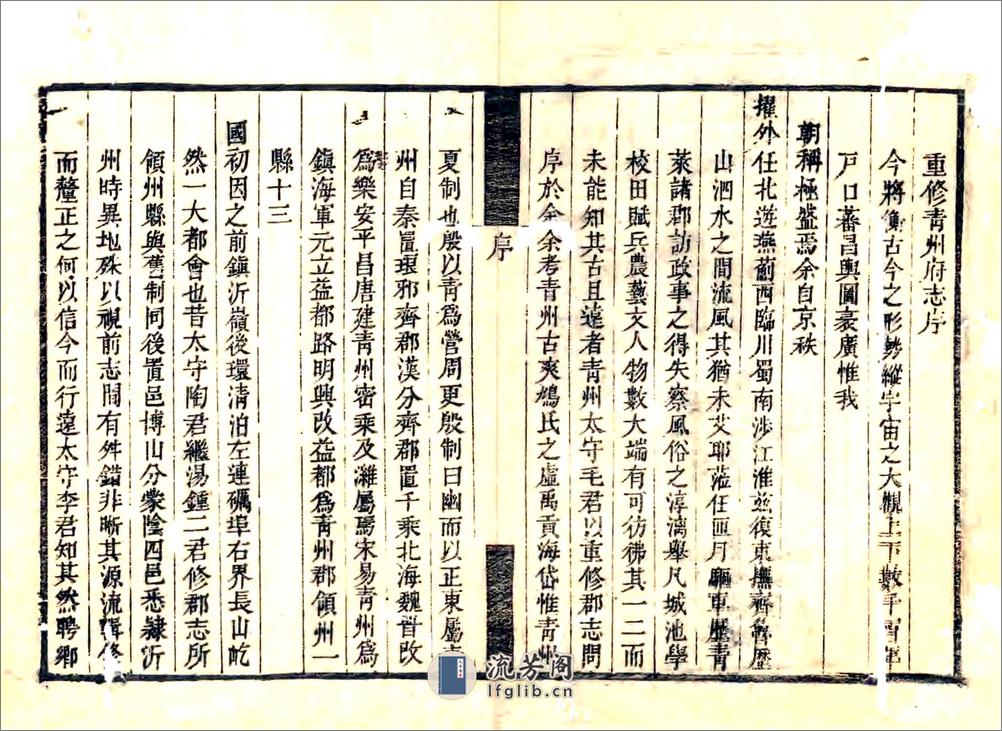 重修青州府志序
今將萃古今之形勢縱宇宙之大觀上下數千百年
戸口蕃昌輿圖袤廣惟我
朝稱極盛焉余自京秩
擢外任北遊燕薊西臨川蜀南涉江淮玆復東撫齊魯歷
山泗水之間流風其猶未艾耶蒞任匝月驅車歷青
萊諸郡訪政事之得失察風俗之淳漓舉凡城池學
校田賦兵農藝文人物數大端有可彷彿其一二而
未能知其古且遠者青州太守毛君以重修郡志問
序於余余考青州古爽鳩氏之虛禹貢海岱惟青州
序
夏制也殷以青爲營周更殷制曰幽而以正東屬青
州自秦置琅邪齊郡漢分齊郡置千乘北海魏晉改
爲樂安平昌唐建青州密乘及濰屬焉宋易青州爲
鎮海軍元立益都路明興改益都爲青州郡領州一
縣十三
國初因之前鎮沂嶺後環清泊左連礪阜右界長山屹
然一大都會也昔太守陶君繼湯鍾二君修郡志所
領州縣與舊制同後置邑博山分蒙陰四邑悉隷沂
州時異地殊以視前志間有舛錯非晰其源流輯修
而釐正之何以信今而行遠太守李君知其然聘鄉
流芳阁
lfglib.cn